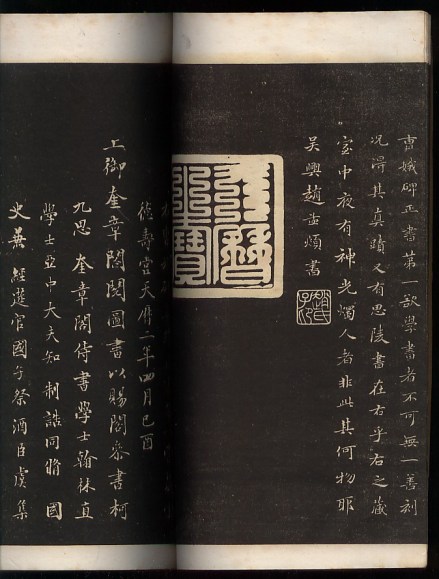 曹娥碑正書第一欲學書者不可無一善刻
況得其真蹟又有思陵書在右乎右之藏
室中夜有神光燭人者非此其何物耶
吳興趙孟頫書
趙氏子昂
天曆之寶
德壽宮天曆二年四月己酉
上御奎章閣閱圖書以賜閣參書柯
九思 奎章閣侍書學士翰林直
學士亞中大夫知 制誥同脩 國
史兼 經筵官國子祭酒臣虞集